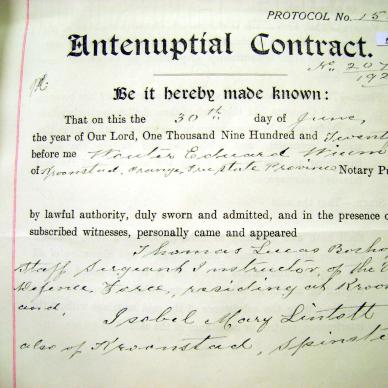 PROTOCOL No. 15
Antenuptial Contract.
No. 207
192
Be it hereby made known:
That on this the 30th day of June,
the year of Our Lord, One Thousand Nine Hundred and Twent
before me Wouter Eduard
of Kroonstad, Orange Free State Province Notary Pu
by lawful authority, duly sworn and admitted, and in the presence o
subscribed witnesses, personally came and appeared
Thomas Lucas
Staff Sergeant Instructor, of the
Defence Force, residing at Kroon
and,
Isobel Mary Lintott
also of Kroonstad, Spinste